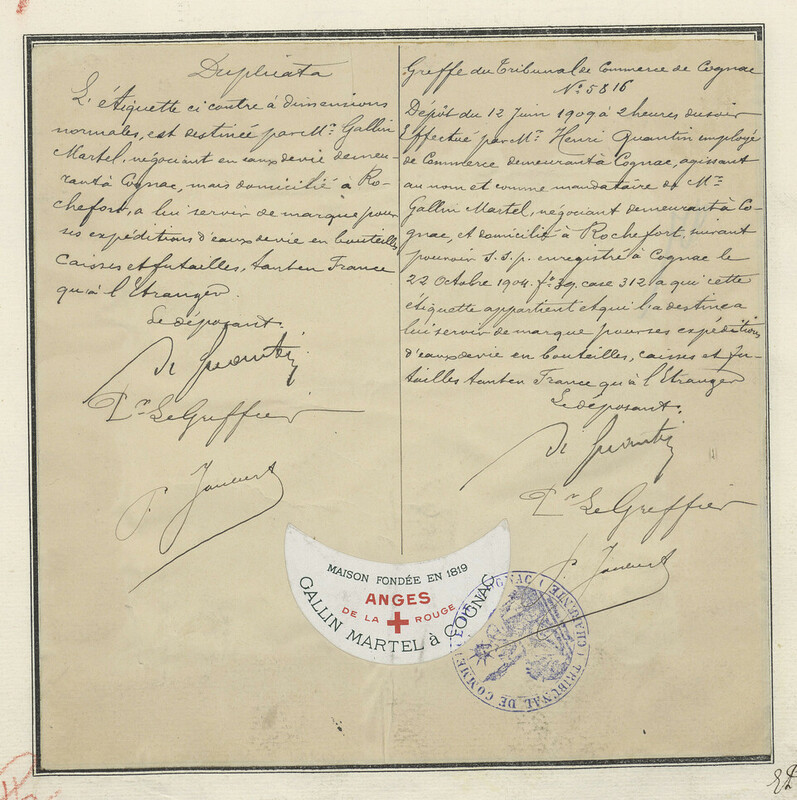 Duplicata
L'étiquette ci contre à dimensions
normales, est destinée par Mr. Gallin
Martel, négociant en eaux devie demeu-
rant à Cognac, mais domicilié à Ro-
chefort, a lui servir de marque pour
ses expéditions d'eaux devie en bouteilles
caisses et futailles, tant en France
qu'à l'Etranger.
Le déposant.
Pr Le Greffier
Greffe du Tribunal de Commerce de Cognac
No. 5816
Dépôt du 12 Juin 1909 à 2 heures du soir
Effectué par Mr. Henri Quantin employé
de Commerce demeurant à Cognac, agissant
au nom et comme mandataire de Mr.
Gallin Martel, négociant demeurant à Co-
gnac, et domicilié à Rochefort, suivant
pouvoir S.S.p. enregistré à Cognac le
22 Octobre 1904. fo. 39, case 312 a qui cette
étiquette appartient et qui l'a destine a
lui servir de marque pour ses expéditions
d'eaux devie en bouteilles, caisses et fu-
tailles tant en France qu'à l'Etranger
Le déposant.
Pr Le Greffier
MAISON FONDÉE EN 1819
ANGES
DE LA ROUGE
GALLIN MARTEL à COGNAC
TRIBUNAL DE COMMERCE DE COGNAC (CHARENTE)